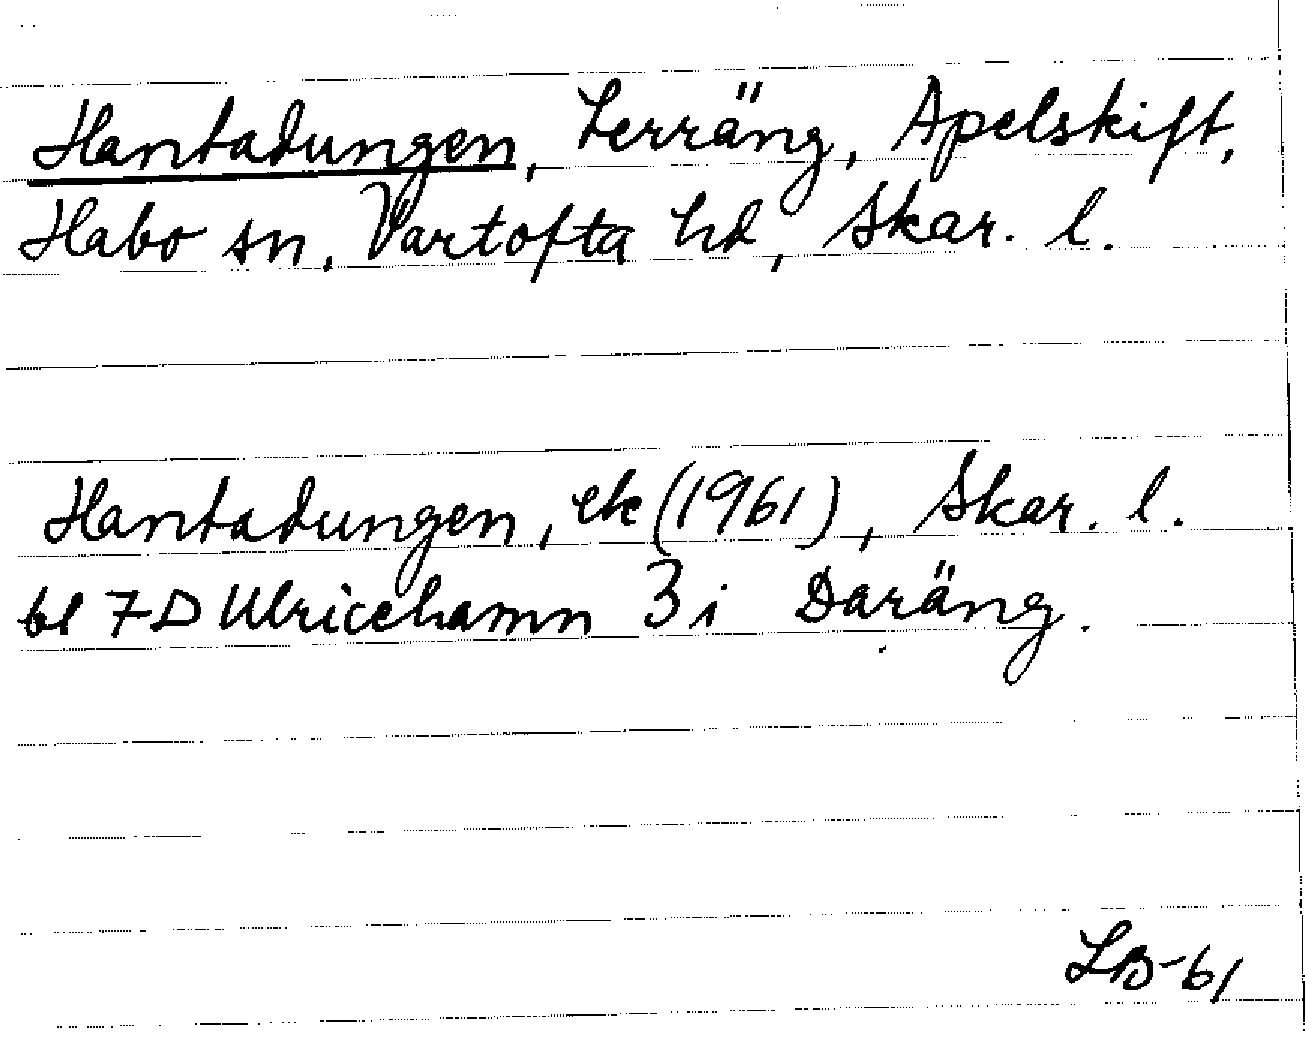 Hantadungen, terräng, Apelskift,
Habo sn. Vartofta hd, Skar. l.
Hantadungen, ek (1961), Skar. l.
bl 7D Ulricehamn 3i Daräng.
LB-61